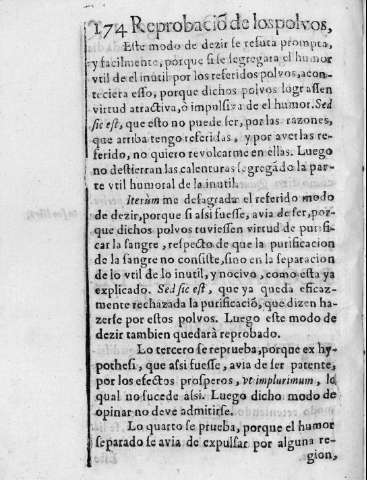 174 Reprobaciõ de los polvos,
Este modo de dezir se refuta prompta,
y facilmente, porque si se segregara el humor
vtil de el inutil por los referidos polvos, acon-
teciera esso, porque dichos polvos lograssen
virtud atractiva, ò impulsiva de el humor. Sed
sic est, que esto no puede ser, por las razones,
que arriba tengo referidas, y por averlas re-
ferido, no quiero revolcarme en ellas. Luego
no destierran las calenturas segregãdo la par-
te vtil humoral de la inutil.
Iterùm me desagrada el referido modo
de dezir, porque si assi fuesse, avia de ser, por-
que dichos polvos tuviessen virtud de purifi-
car la sangre, respecto de que la purificacion
de la sangre no consiste, sino en la separacion
de lo vtil de lo inutil, y nocivo, como esta ya
explicado. Sed sic est, que ya queda eficaz-
mente rechazada la purificaciõ, que dizen ha-
zerse por estos polvos. Luego este modo de
dezir tambien quedarà reprobado.
Lo tercero se reprueba, porque ex hy-
pothesi, que assi fuesse, avia de ser patente,
por los efectos prosperos, vt implurimum, lo
qual no sucede assi. Luego dicho modo de
opinar no deve admitirse.
Lo quarto se prueba, porque el humor
separado se avia de expulsar por alguna re-
gion,